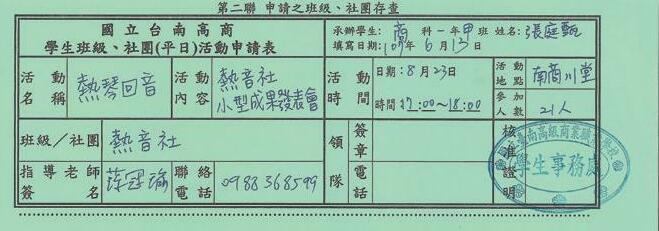 第二聯 申請之班級、社團存查
國立台南高商
學生班級、社團(平日)活動申請表
承辦學生: 商 科一年甲班 姓名: 張庭甄
填寫日期: 109年6月13日
活動名稱 熱琴回音
活動內容 熱音社小型成果發表會
活動時間 日期: 8月23日
時間: 17:00~18:00
活動地點 南商川堂
參加人數 21人
班級/社團 熱音社
領隊
簽章
電話
核准證明
指導老師簽名
聯絡電話 0988368599
臺南高級商業職業學校
學生事務處